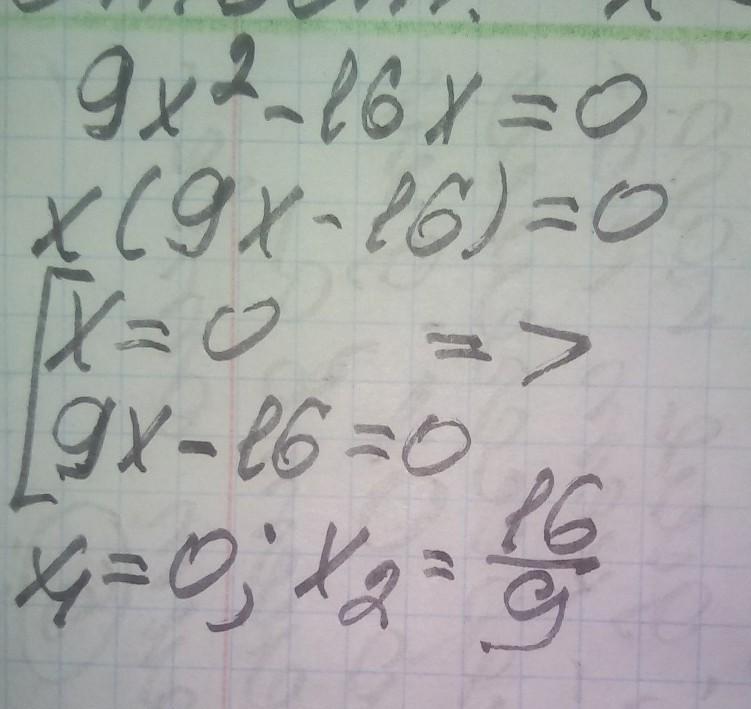 9x² - 16x = 0
x(9x - 16) = 0
[x = 0 =>
9x - 16 = 0
x₁ = 0; x₂ = 16/9